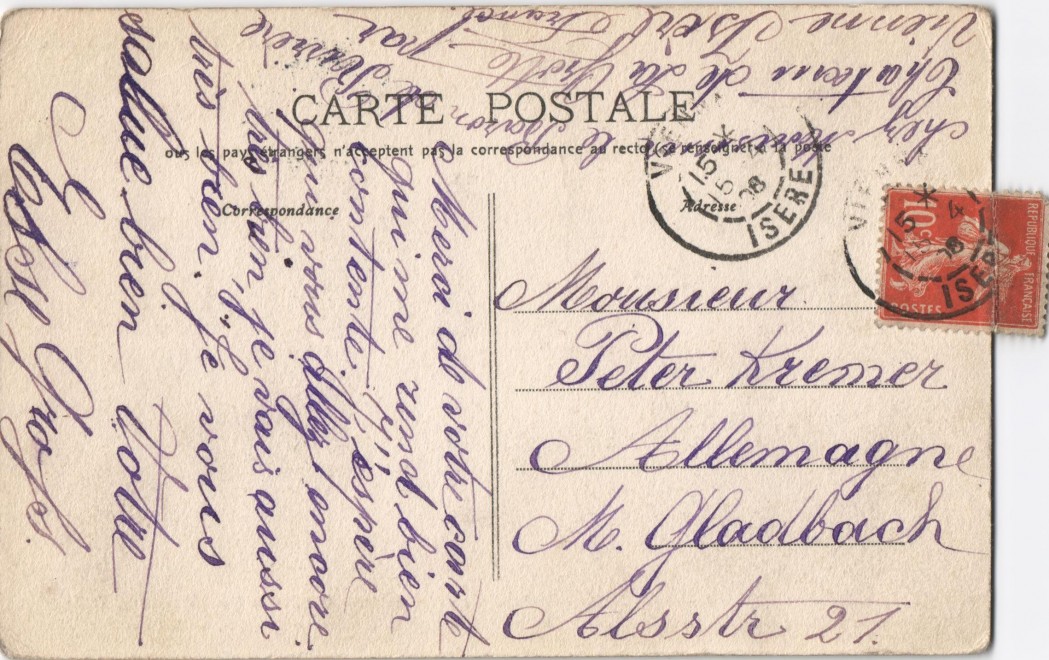 CARTE POSTALE
ous les pays étrangers n'acceptent pas la correspondance au recto (se renseigner à la poste
Correspondance
Adresse
Merci de votre carte
qui me rend bien
contente, j'éspère
que vous allez encore
très bien, je vais aussi
très bien. Je vous
sallue bien votre
Monsieur
Peter Kremer
Allemagne
M. Gladbach
Alsstr 21.
chez
le Baron de
Chateau de la
par
Vienne Isère
VIENNE
15
5
08
ISERE
VIENNE
15
4
08
ISERE
REPUBLIQUE FRANÇAISE
10c
POSTES